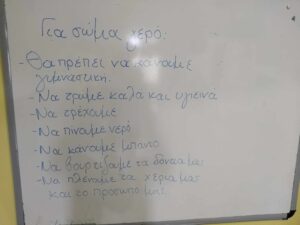 Για σώμα γερό:
- Θα πρέπει να κάνουμε
γυμναστική.
- Να τρώμε καλά και υγιεινά
- Να τρέχουμε
- Να πίνουμε νερό
- Να κάνουμε μπάνιο
- Να βουρτσίζουμε τα δόντια μας
- Να πλένουμε τα χέρια μας
και το πρόσωπό μας.